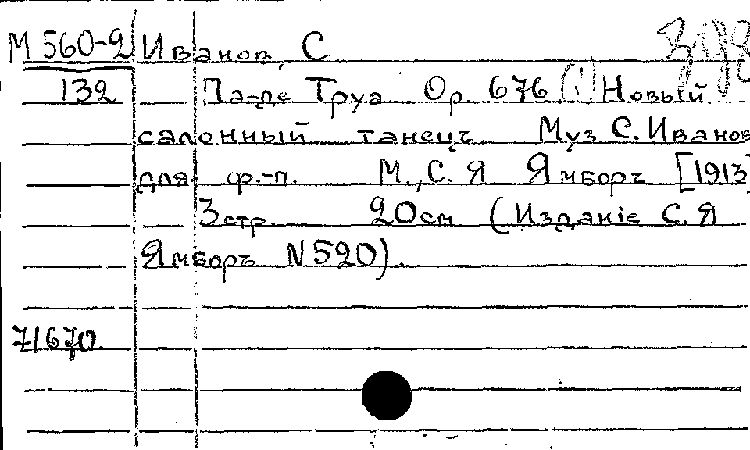 М 560-2 Иванов, С
132 Па-де Труа Op. 676 (!) Новый
салонный танецъ Муз С. Иванов
для ф.-п. М., С. Я Ямборъ [1913]
3 стр 20 см (Изданіе С. Я
Ямборъ N 520).
71670